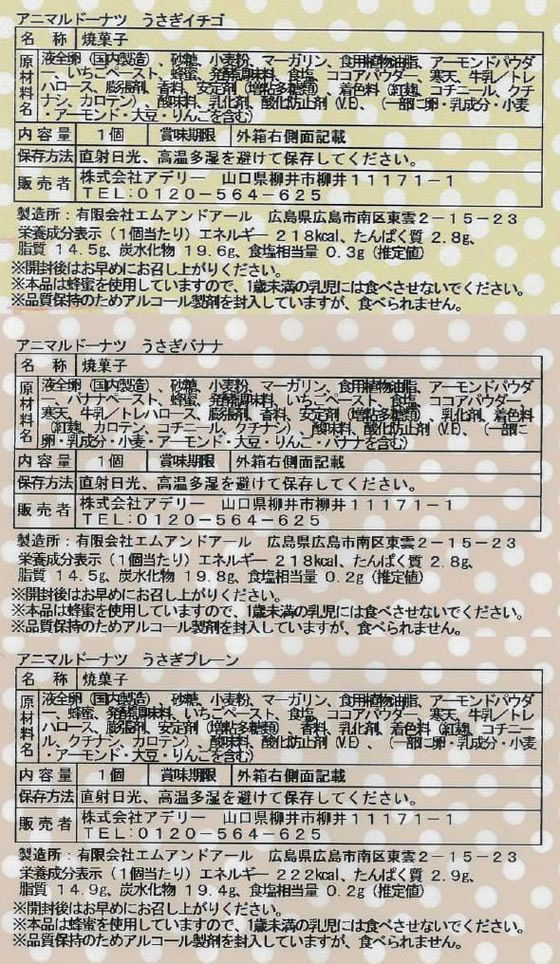 アニマルドーナツ　うさぎイチゴ
名　称　焼菓子
原材料名　液全卵（国内製造）、砂糖、小麦粉、マーガリン、食用植物油脂、アーモンドパウダ
ー、いちごペースト、蜂蜜、発酵調味料、食塩、ココアパウダー、寒天、牛乳／トレ
ハロース、膨張剤、香料、安定剤（増粘多糖類）、着色料（紅麹、コチニール、クチ
ナシ、カロテン）、酸味料、乳化剤、酸化防止剤（V.E）、（一部に卵・乳成分・小麦
・アーモンド・大豆・りんごを含む）
内容量　1個　賞味期限　外箱右側面記載
保存方法　直射日光、高温多湿を避けて保存してください。
販売者　株式会社アデリー　山口県柳井市柳井１１１７１－１
ＴＥＬ:０１２０－５６４－６２５
製造所：有限会社エムアンドアール　広島県広島市南区東雲２－１５－２３
栄養成分表示（１個当たり）エネルギー 218kcal、たんぱく質 2.8g、
脂質 14.5g、炭水化物 19.6g、食塩相当量 0.3g（推定値）
※開封後はお早めにお召し上がりください。
※本品は蜂蜜を使用していますので、1歳未満の乳児には食べさせないでください。
※品質保持のためアルコール製剤を封入していますが、食べられません。
アニマルドーナツ　うさぎバナナ
名　称　焼菓子
原材料名　液全卵（国内製造）、砂糖、小麦粉、マーガリン、食用植物油脂、アーモンドパウダ
ー、バナナペースト、蜂蜜、発酵調味料、いちごペースト、食塩、ココアパウダー、
寒天、牛乳／トレハロース、膨張剤、香料、安定剤（増粘多糖類）、乳化剤、着色料
（紅麹、カロテン、コチニール、クチナシ）、酸味料、酸化防止剤（V.E）、（一部に
卵・乳成分・小麦・アーモンド・大豆・りんご・バナナを含む）
内容量　1個　賞味期限　外箱右側面記載
保存方法　直射日光、高温多湿を避けて保存してください。
販売者　株式会社アデリー　山口県柳井市柳井１１１７１－１
ＴＥＬ:０１２０－５６４－６２５
製造所：有限会社エムアンドアール　広島県広島市南区東雲２－１５－２３
栄養成分表示（１個当たり）エネルギー 218kcal、たんぱく質 2.8g、
脂質 14.5g、炭水化物 19.8g、食塩相当量 0.2g（推定値）
※開封後はお早めにお召し上がりください。
※本品は蜂蜜を使用していますので、1歳未満の乳児には食べさせないでください。
※品質保持のためアルコール製剤を封入していますが、食べられません。
アニマルドーナツ　うさぎプレーン
名　称　焼菓子
原材料名　液全卵（国内製造）、砂糖、小麦粉、マーガリン、食用植物油脂、アーモンドパウダ
ー、蜂蜜、発酵調味料、いちごペースト、食塩、ココアパウダー、寒天、牛乳／トレ
ハロース、膨張剤、安定剤（増粘多糖類）、香料、乳化剤、着色料（紅麹、コチニー
ル、クチナシ、カロテン）、酸味料、酸化防止剤（V.E）、（一部に卵・乳成分・小麦
・アーモンド・大豆・りんごを含む）
内容量　1個　賞味期限　外箱右側面記載
保存方法　直射日光、高温多湿を避けて保存してください。
販売者　株式会社アデリー　山口県柳井市柳井１１１７１－１
ＴＥＬ:０１２０－５６４－６２５
製造所：有限会社エムアンドアール　広島県広島市南区東雲２－１５－２３
栄養成分表示（１個当たり）エネルギー 222kcal、たんぱく質 2.9g、
脂質 14.9g、炭水化物 19.4g、食塩相当量 0.2g（推定値）
※開封後はお早めにお召し上がりください。
※本品は蜂蜜を使用していますので、1歳未満の乳児には食べさせないでください。
※品質保持のためアルコール製剤を封入していますが、食べられません。